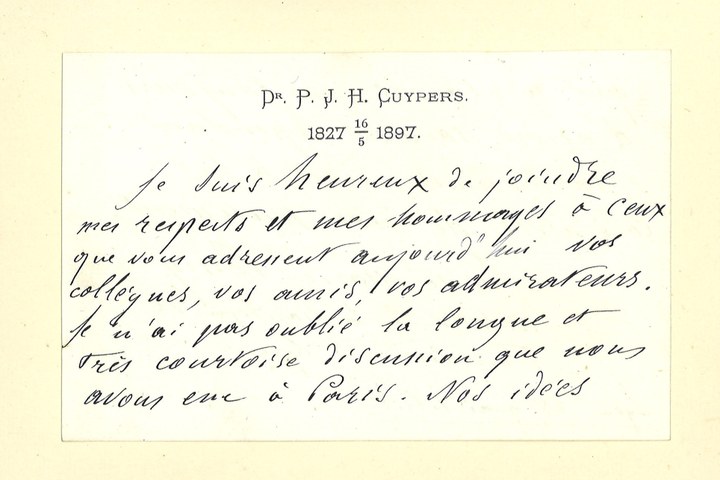 Dr. P. J. H. CUYPERS.
1827 16/5 1897.
Je suis heureux de joindre
mes respects et mes hommages à ceux
que vous adressent aujourd'hui vos
collégues, vos amis, vos admirateurs.
Je n'ai pas oublié la longue et
très courtoise discussion que nous
avons eue à Paris. Nos idées